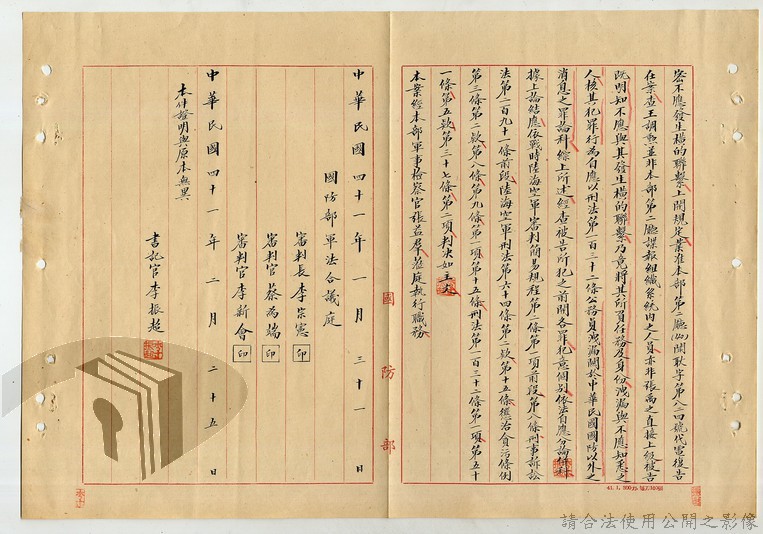 密不應發生橫的聯繫上開規定業准本部第二廳(四)開耿字第八二四號代電復告
在案查王胡燕並非本部第二廳諜報組織系統內之人員亦非張為之直接上級被告
既明知不應與其發生橫的聯繫乃竟將其所負任務及身份洩漏與不應知悉之
人核其犯罪行為自應以刑法第一百三十二條公務員洩漏關於中華民國國防以外之
消息之罪論科綜上所述經查被告所犯之前開各罪犯意個別依法自應分論併科
據上論結應依戰時陸海空軍審判簡易規程第二條第一項前段第八條刑事訴訟
法第二百九十一條前段陸海空軍刑法第六十四條第二款第十五條懲治貪污條例
第三條第二款第八條第九條第一項第十五條刑法第一百三十二條第一項第五十
一條第五款第三十七條第二項判決如主文
本案經本部軍事檢察官張益群蒞庭執行職務
中華民國四十一年一月三十一日
國防部軍法合議庭
審判長李宗憲 印
審判官蔡為端 印
審判官李新會 印
國防部
中華民國四十一年二月二十五日
本件證明與原本無異
書記官李振超
請合法使用公開之影像